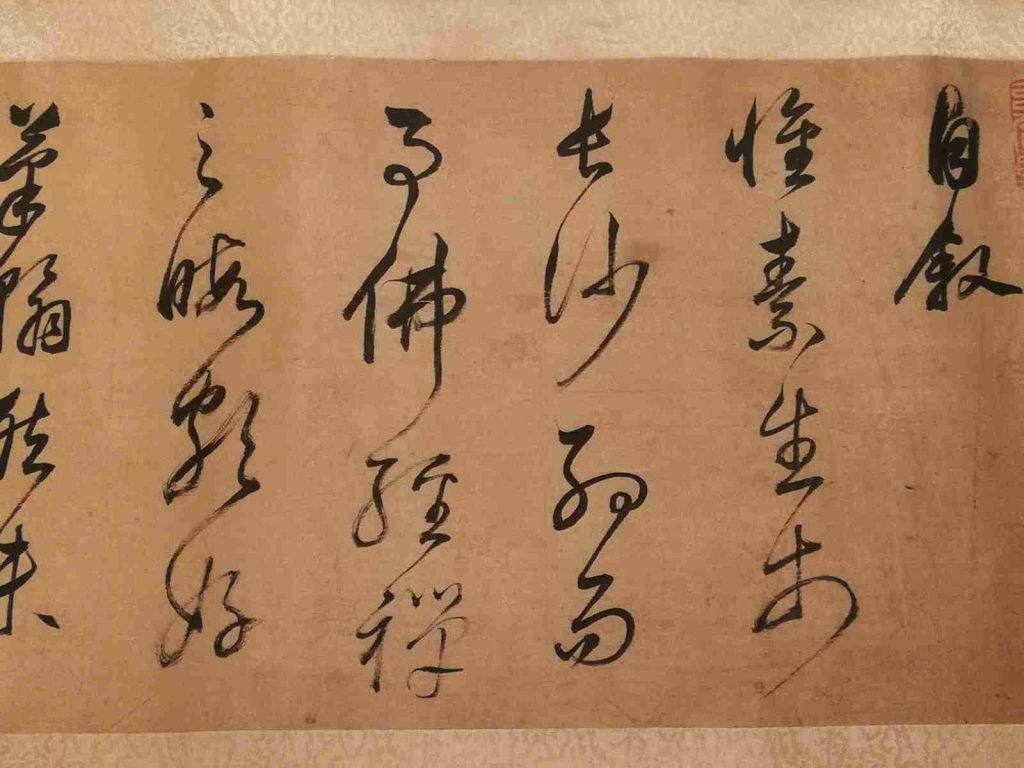 自叙
惟素生於
長沙幼而
事佛經禪
之暇頗好
筆翰然未